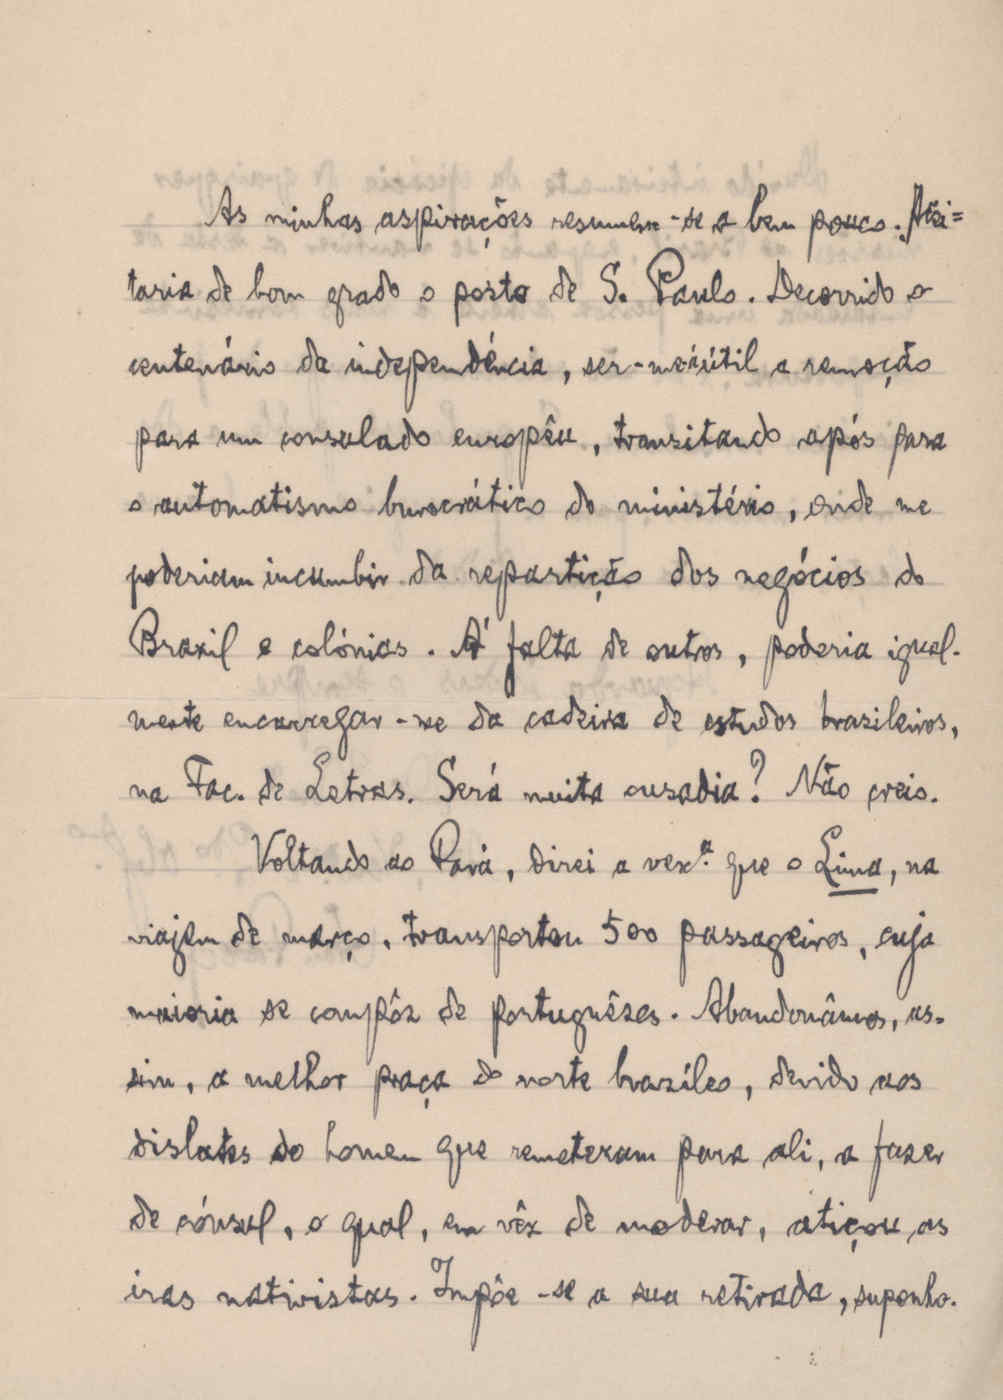 As minhas aspirações resumem-se a bem pouco. Acei=
taria de bom grado o posto de S. Paulo. Decorrido o
centenário da independência, ser-me-ia útil a remoção
para um consulado europêu, transitando após para
o automatismo burocrático do ministério, onde me
poderiam incumbir da repartição dos negócios do
Brazil e colónias. Á falta de outros, poderia igual-
mente encarregar-me da cadeira de estudos brasileiros,
na Fac. de Letras. Será muita ousadia? Não creio.
Voltando ao Pará, direi a vexª. que o Lima, na
viajem de março, transportou 500 passageiros, cuja
maioria se compôz de portuguêses. Abandonâmos, as-
sim, a melhor praça do norte brazíleo, devido aos
dislates do homem que remeteram para ali, a fazer
de cónsul, o qual, em vêz de moderar, atiçou as
iras nativistas. Impõe-se a sua retirada, suponho.